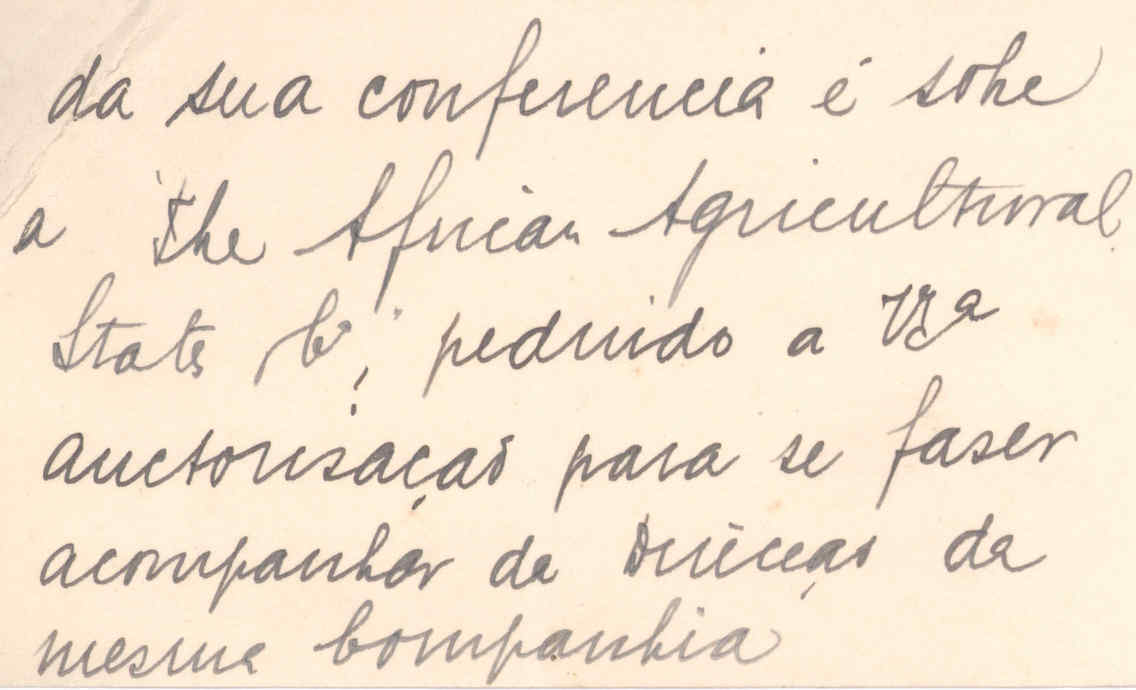 da sua conferencia é sobre
a "The African Agricultural
State Cº", pedindo a V Exª
auctorisação para se faser
acompanhar da Direcção da
mesma Companhia